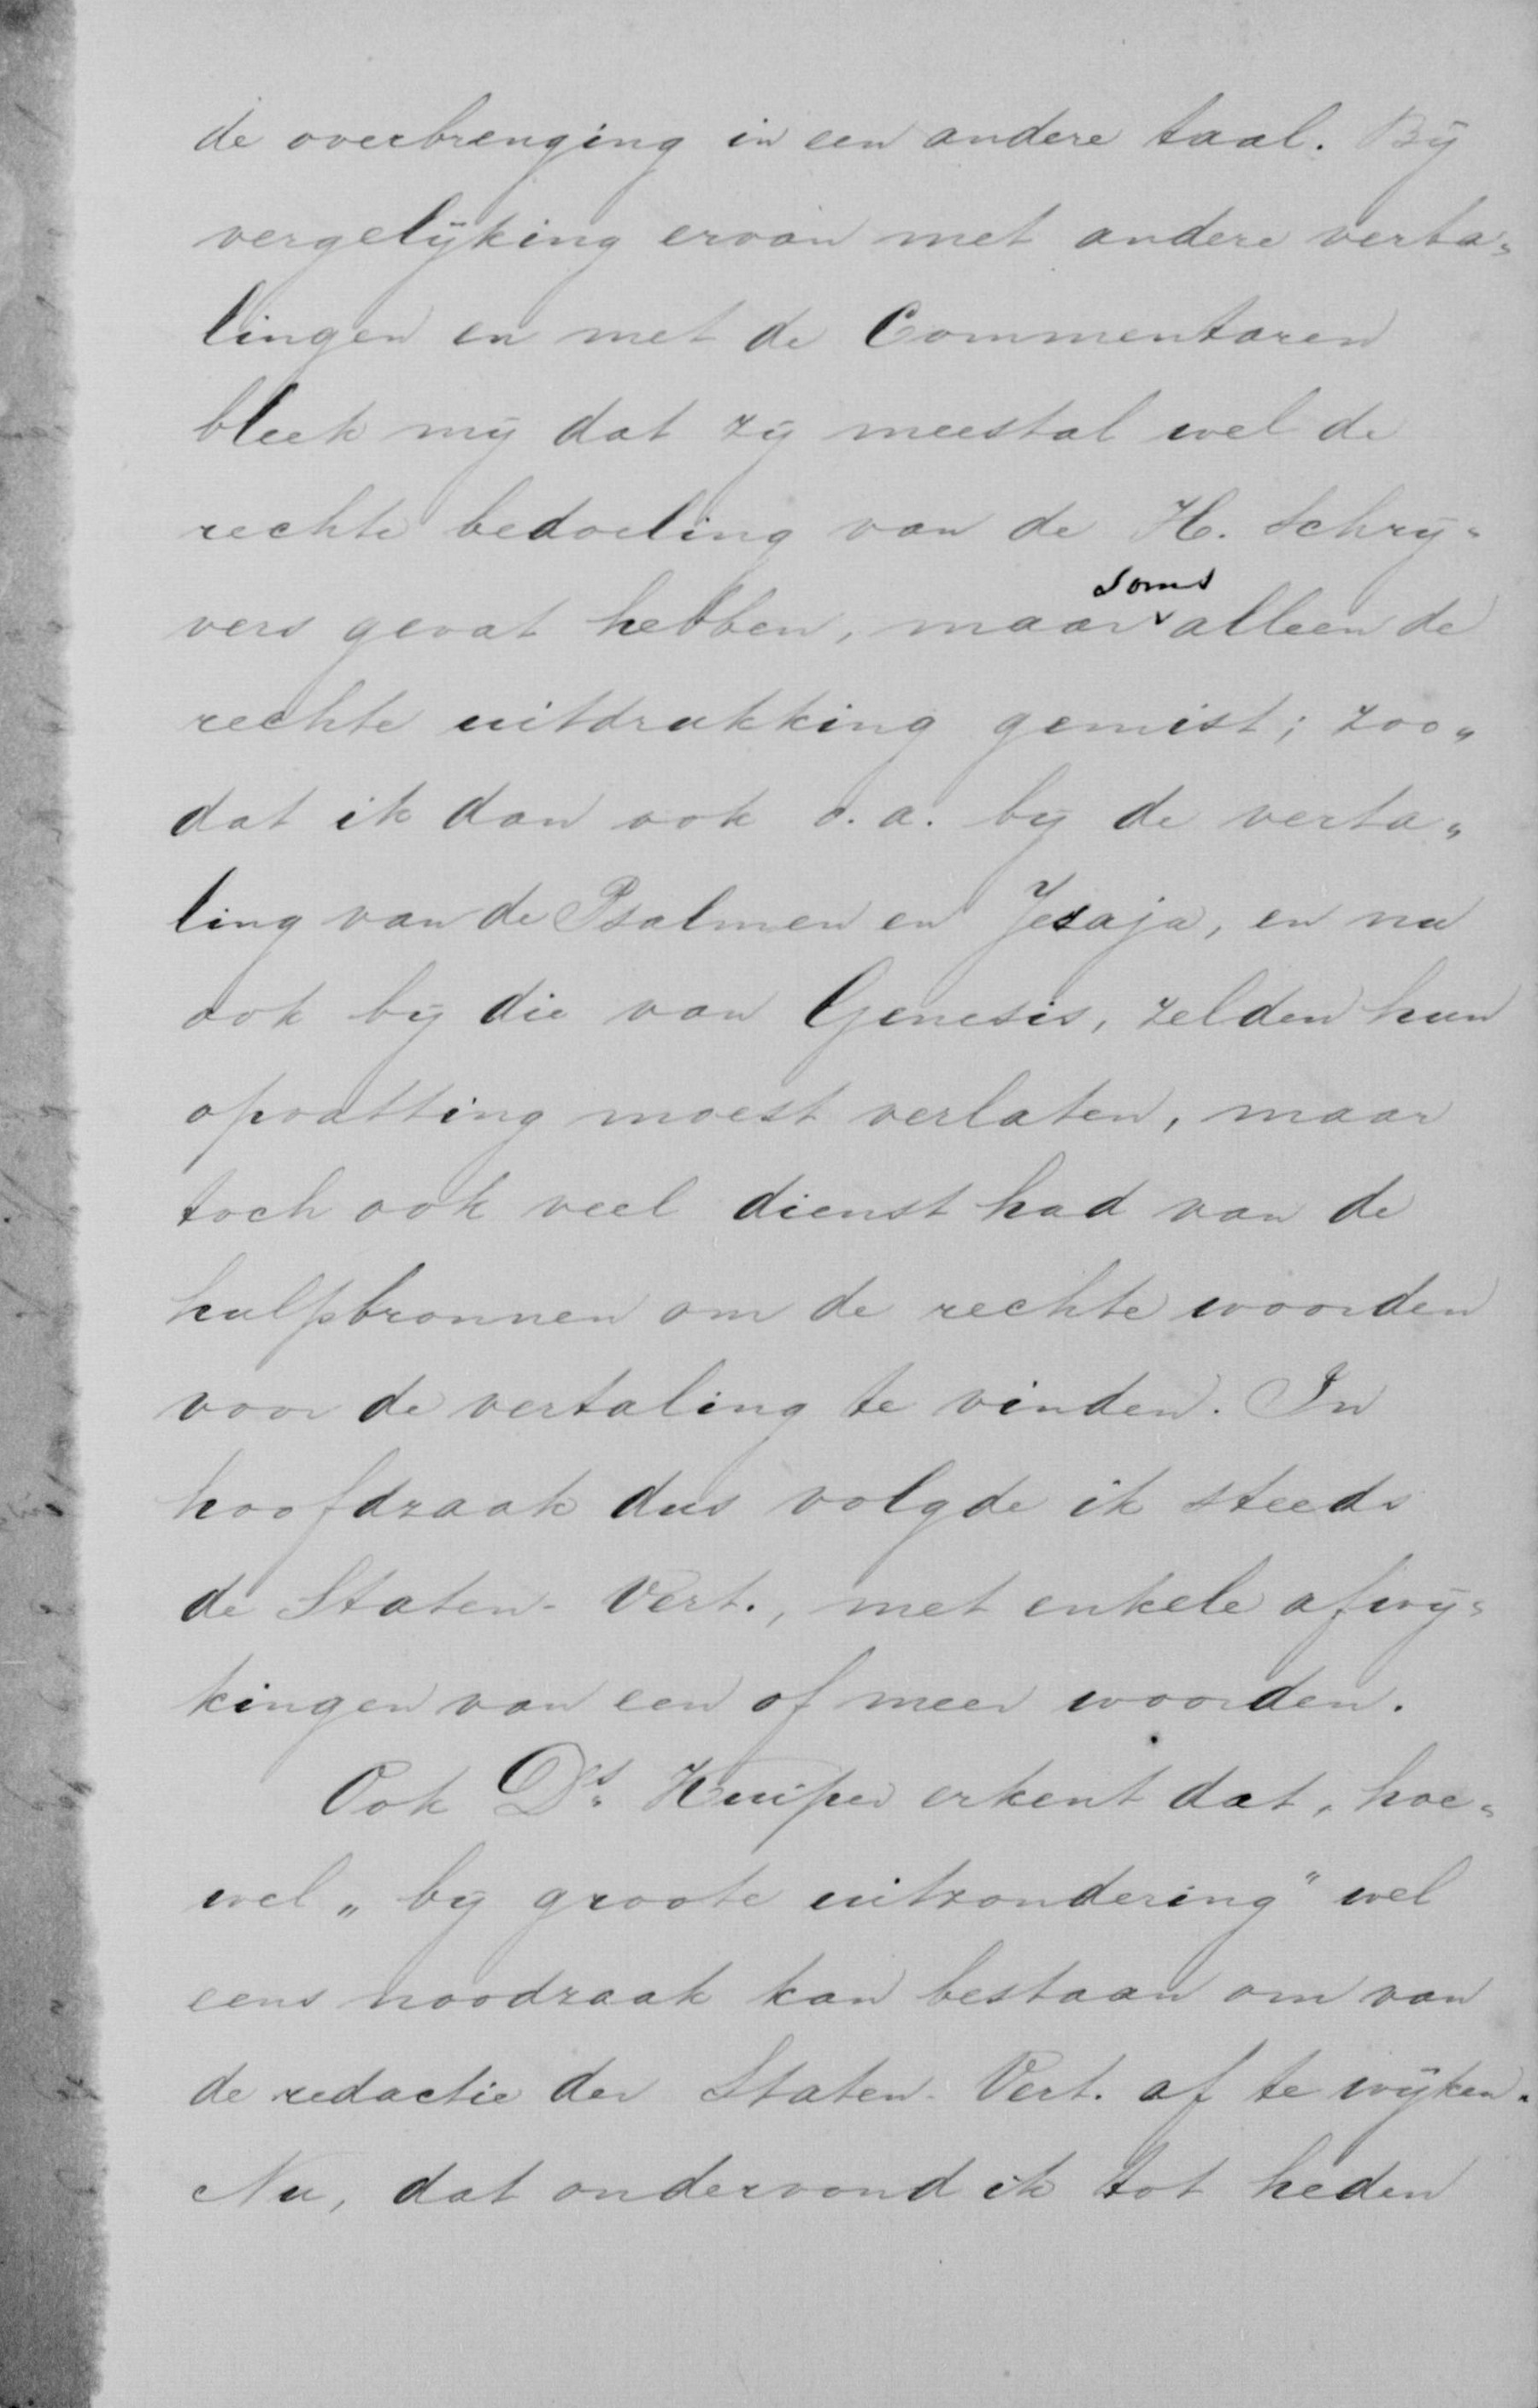 de overbrenging in een andere taal. Bij
vergelijking ervan met andere verta=
lingen en met de Commentaren
bleek mij dat zij meestal wel de
rechte bedoeling van de H. Schrij=
vers gevat hebben, maar soms alleen de
rechte uitdrukking gemist; zoo„
dat ik dan ook o.a. bij de verta„
ling van de Psalmen en Jesaja, en nu
ook bij die van Genesis, zelden hun
opvatting moest verlaten, maar
toch ook veel dienst had van de
hulpbronnen om de rechte woorden
voor de vertaling te vinden. In
hoofdzaak dus volgde ik steeds
de Staten-Vert., met enkele afwij=
kingen van een of meer woorden.
Ook Ds. Kuiper erkent dat, hoe=
wel „bij groote uitzondering" wel
eens noodzaak kan bestaan om van
de redactie der Staten-Vert. af te wijken.
Nu, dat ondervond ik tot heden